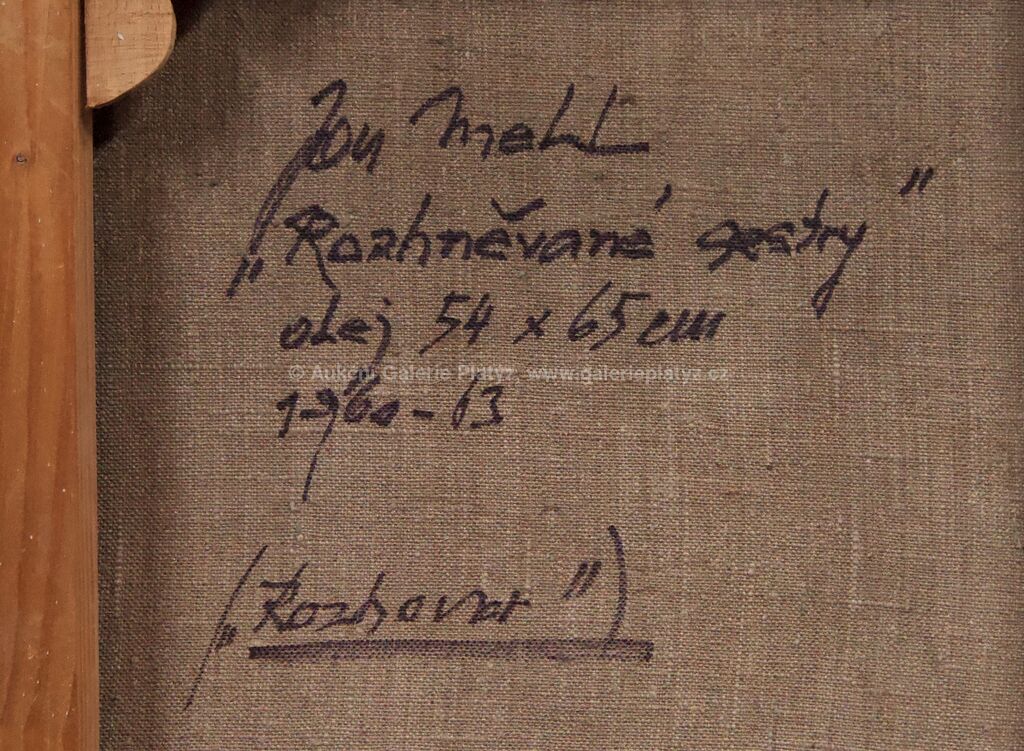 Jan Mehl
„Rozhněvané sestry"
olej 54 x 65 cm
© Aukční Galerie Platýz, www.galerieplatyz.cz
1960-63
(„Rozhovor")